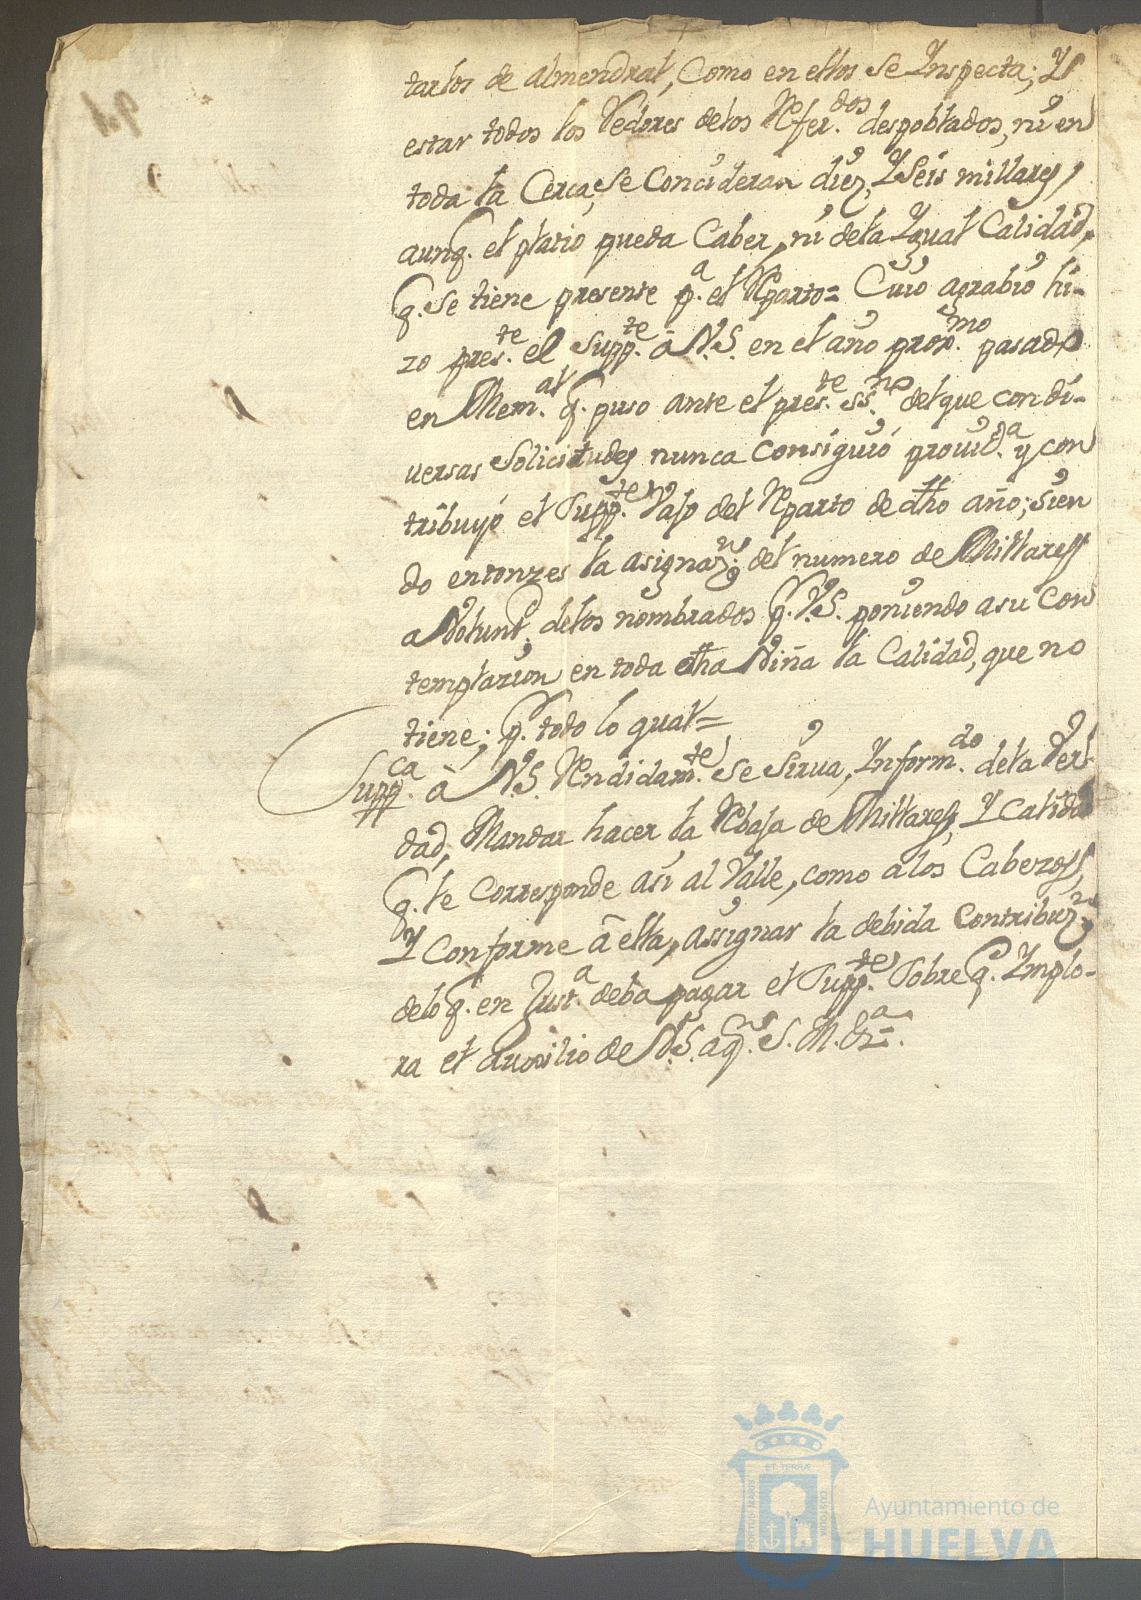 tarlos de almendral, Como en ellos se Ynspecta; Y
estar todos los Vedores delos Refer.dos despoblados, ni en
toda la Cerca, se Concideran diez, Y Seis millares,
aunq. el plario pueda Caber, ni dela Ygual Calidad,
q. se tiene presente p.a el Rparto= Cuio agrabio hi-
zo pres.te el Supp.te â V.S. en el año prox.mo pasado
en Mem.al q. puso ante el pres.te ss.no del que con di-
versas Solicitudes nunca consiguió provid.a y con
tribuyó el Supp.te Vajo del Rparto de dho año; sien
do entonzes la asignaz.n del numero de Millares
a Volunt.d delos nombrados p. V.S. poniendo a su Con
templazion en toda dha Viña la Calidad, que no
tiene; p. todo lo qual=
Supp.ca â V.S. Rendidam.te se sirva, Inform.do dela Ver-
dad, Mandar hacer la Rbaja de Millares, Y Calidad
q. le corresponde asi al Valle, como a los Cabezos,
Y Conforme â ella, assignar la debida Contribuz.n
delo q. en Just.a deba pagar el Supp.te Sobre q. Implo-
ra el auxilio de V.S. aq.n S. M. &.a
Ayuntamiento de
HUELVA